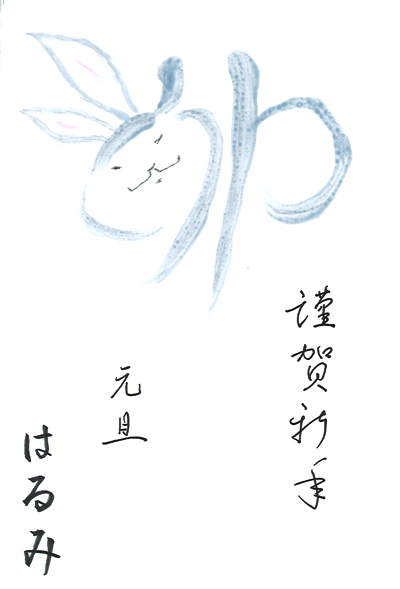 卯
謹賀新年
元旦
はるみ